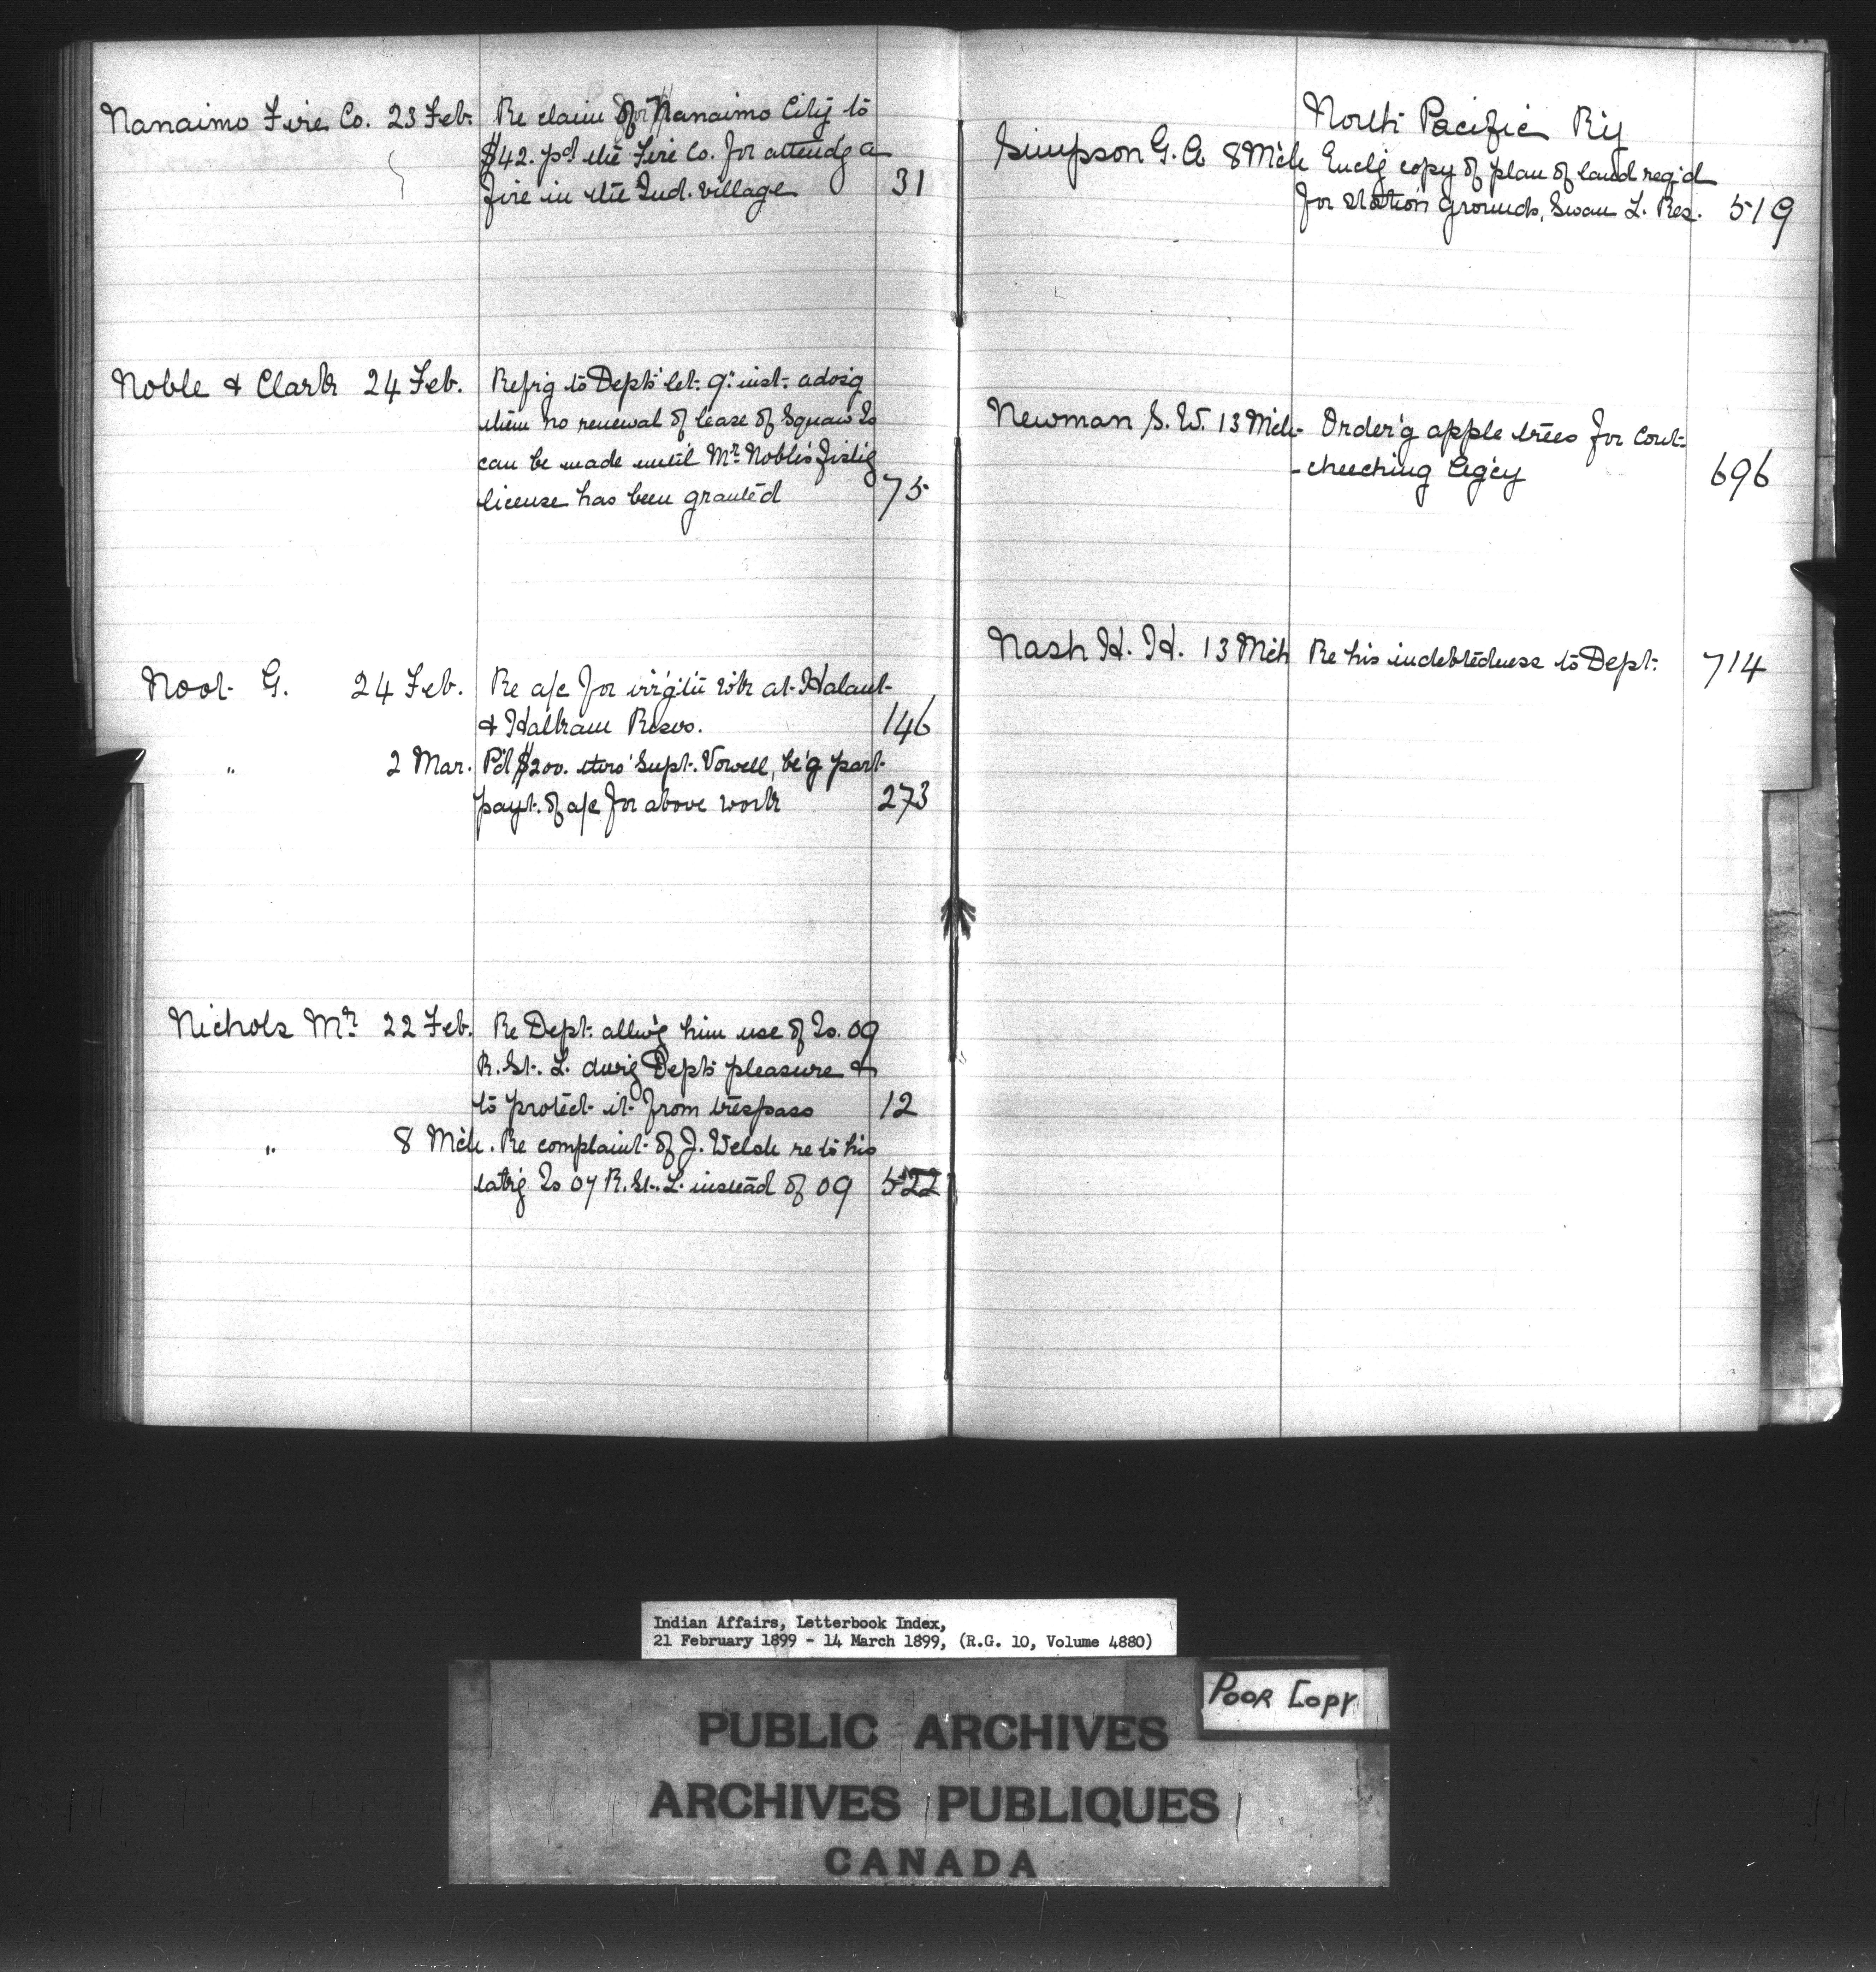 Nanaimo Fire Co. 23 Feb. Re claim of Nanaimo City to
$42. pd the Fire Co. for attendg a
fire in the Ind. village 31
Noble & Clark 24 Feb. Refrig to Dept's let. 9th inst. advs'g
them no renewal of lease of Squaw Is
can be made until Mr. Noble's fish'g
license has been granted 75
Noot G. 24 Feb. Re a/c for irrig'tn wk at Halaut
& Haltkam Resvs. 146
" 2 Mar. P'd $200. thro' Supt. Vowell, be'g part
payt. of a/c for above work 273
Nichols Mr. 22 Feb. Re Dept. allow'g him use of Is. 09
R. St. L. durig Dept's pleasure &
to protect it from trespass 12
" 8 Mch. Re complaint of J. Welsh re to his
tak'g Is 07 R. St. L. instead of 09 522
North Pacific Ry
Simpson G. A 8 Mch Encl'g copy of plan of land req'd
for station grounds, Swan L. Res. 519
Newman S. W. 13 Mch. Order'g apple trees for Cout-
-cheeching Ag'cy 696
Nash H. H. 13 Mch Re his indebtedness to Dept. 714
Indian Affairs, Letterbook Index,
21 February 1899 - 14 March 1899, (R.G. 10, Volume 4880)
Poor Copy
PUBLIC ARCHIVES
ARCHIVES PUBLIQUES
CANADA